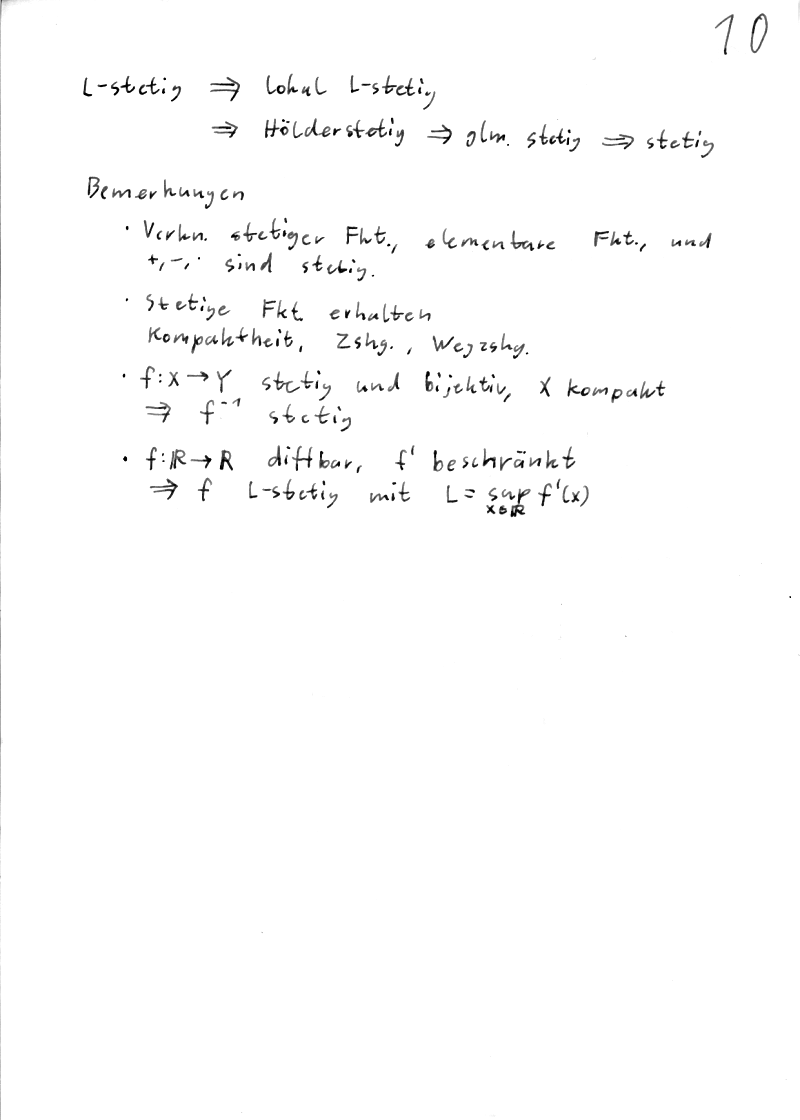 10
L-stetig ⇒ lokal L-stetig
⇒ Hölderstetig ⇒ glm. stetig ⇒ stetig
Bemerkungen
· Verkn. stetiger Fkt., elementare Fkt., und
+,-,· sind stetig.
· Stetige Fkt. erhalten
Kompaktheit, Zshg., Wegzshg.
· f: X → Y stetig und bijektiv, X kompakt
⇒ f⁻¹ stetig
· f: ℝ → ℝ diffbar, f' beschränkt
⇒ f L-stetig mit L = sup f'(x)
x∈ℝ